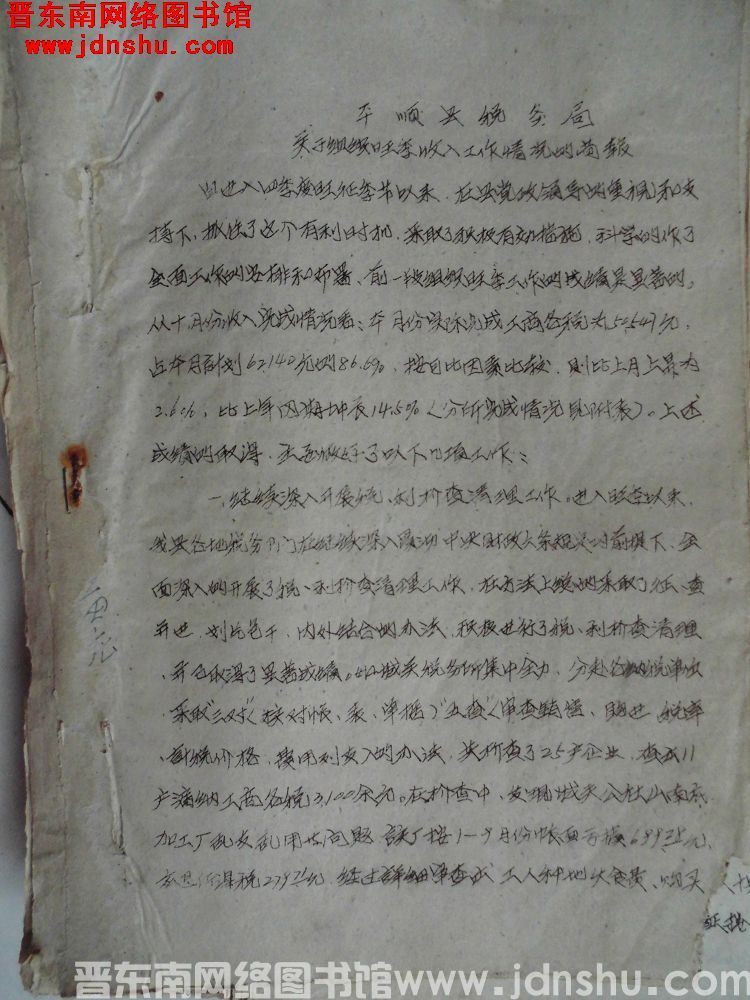 晋东南网络图书馆
www.jdnshu.com
平顺县税务局
关于组织旺季收入工作情况的简报
自进入四季度旺征季节以来，在县党政领导的重视和支
持下，抓住了这个有利时机，采取了积极有效措施，科学的作了
全面工作的安排和布署，前一段组织旺季工作的成绩是显著的。
从十月份收入完成情况看：本月份实际完成工商各税为
占本月计划62140元的86.6%，按可比因素比较，则比上月上升为
2.6%，比上年同期增长14.5%（分析完成情况见附表）。上述
成绩的取得，主要做好了以下几项工作：
一、继续深入开展税、利检查清理工作。进入旺季以来，
我县各地税务部门在继续深入贯彻中央财政六条规定的前提下，全
面深入的开展了税、利检查清理工作，在方法上统的采取了征、查
并进，划片包干，内外结合的办法，积极进行了税、利检查清理
，并已取得了显著成绩。如城关税务所集中全力，分赴各
采取"三对"（核对帐、表、单据）"五查"（审查销售、购进、税率
、计税价格、费用列支）的办法，共检查了25户企业，查出11
户漏纳工商各税3,100余元。在检查中，发现城关公社山南底
加工厂乱支乱用等问题，该厂按1—9月份帐面亏损
工人种地伙食费、购买